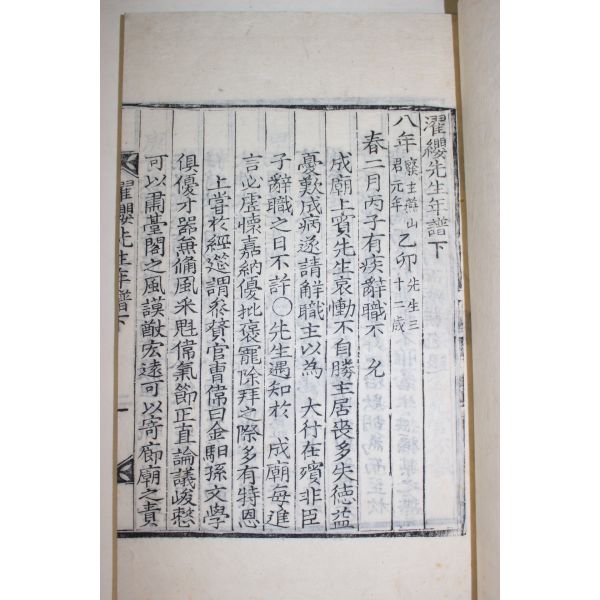 濯纓先生年譜下
八年 廢主燕山君元年 乙卯 先生三十二歲
春二月丙子有疾辭職不 允
成廟上賓先生哀慟不自勝主居喪多失德益
憂歎成病遂請解職主以為 大行在殯非臣
子辭職之日不許〇先生遇知於 成廟每進
言必虛懷嘉納優批褒寵除拜之際多有特恩
上嘗於經筵謂參贊官曺偉曰金馹孫文學
俱優才器兼備風采魁偉氣節正直論議峻整
可以肅臺閣之風謨猷宏遠可以寄廊廟之責
濯纓先生年譜下 一